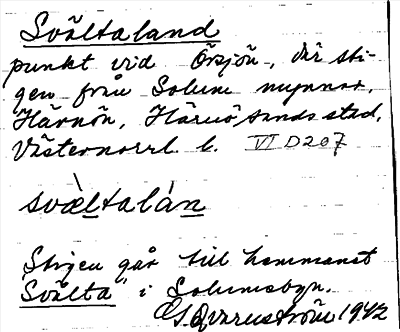 Svältaland
punkt vid Örsjön, där sti-
gen från Solum mynnar,
Härnön, Härnösands stad,
Västernorrl. l. VI D207
svæ̀ltalán
Stigen går till hemmanet
"Svälta" i Solumsbyn.
1942